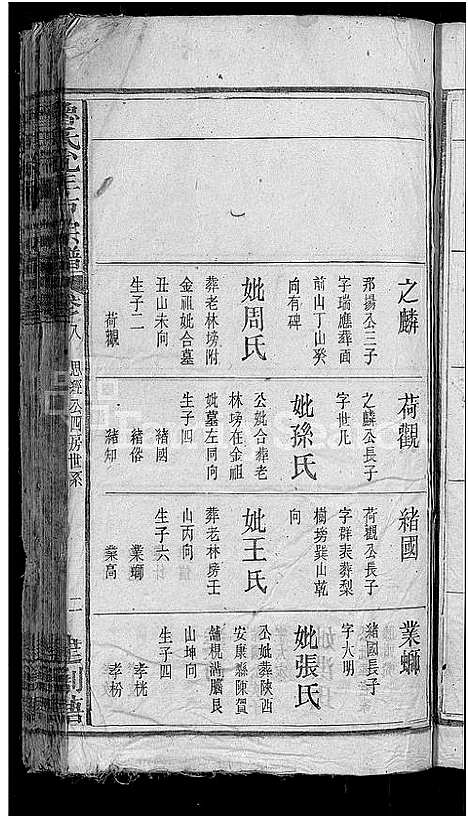 之麟
那揚公三子
字瑞應葬面
前山丁山癸
向有碑
妣周氏
葬老林塝附
金祖妣合墓
丑山未向
生子二
荷觀
荷觀
之麟公長子
字世凡
妣孫氏
公妣合葬老
林塝在金祖
妣墓左同向
生子四
緒國
緒俗
緒知
緒國
荷觀公長子
字群表葬梨
樹塝巽山乾
向
妣王氏
葬老林塝壬
山丙向
生子六
業螄
業高
業螄
緒國長子
字大明
妣張氏
公妣葬陝西
安康縣陳賀
舖梘溝腦艮
山坤向
生子四
孝枕
孝枋
宗譜
卷之八
思經公四房世系
二